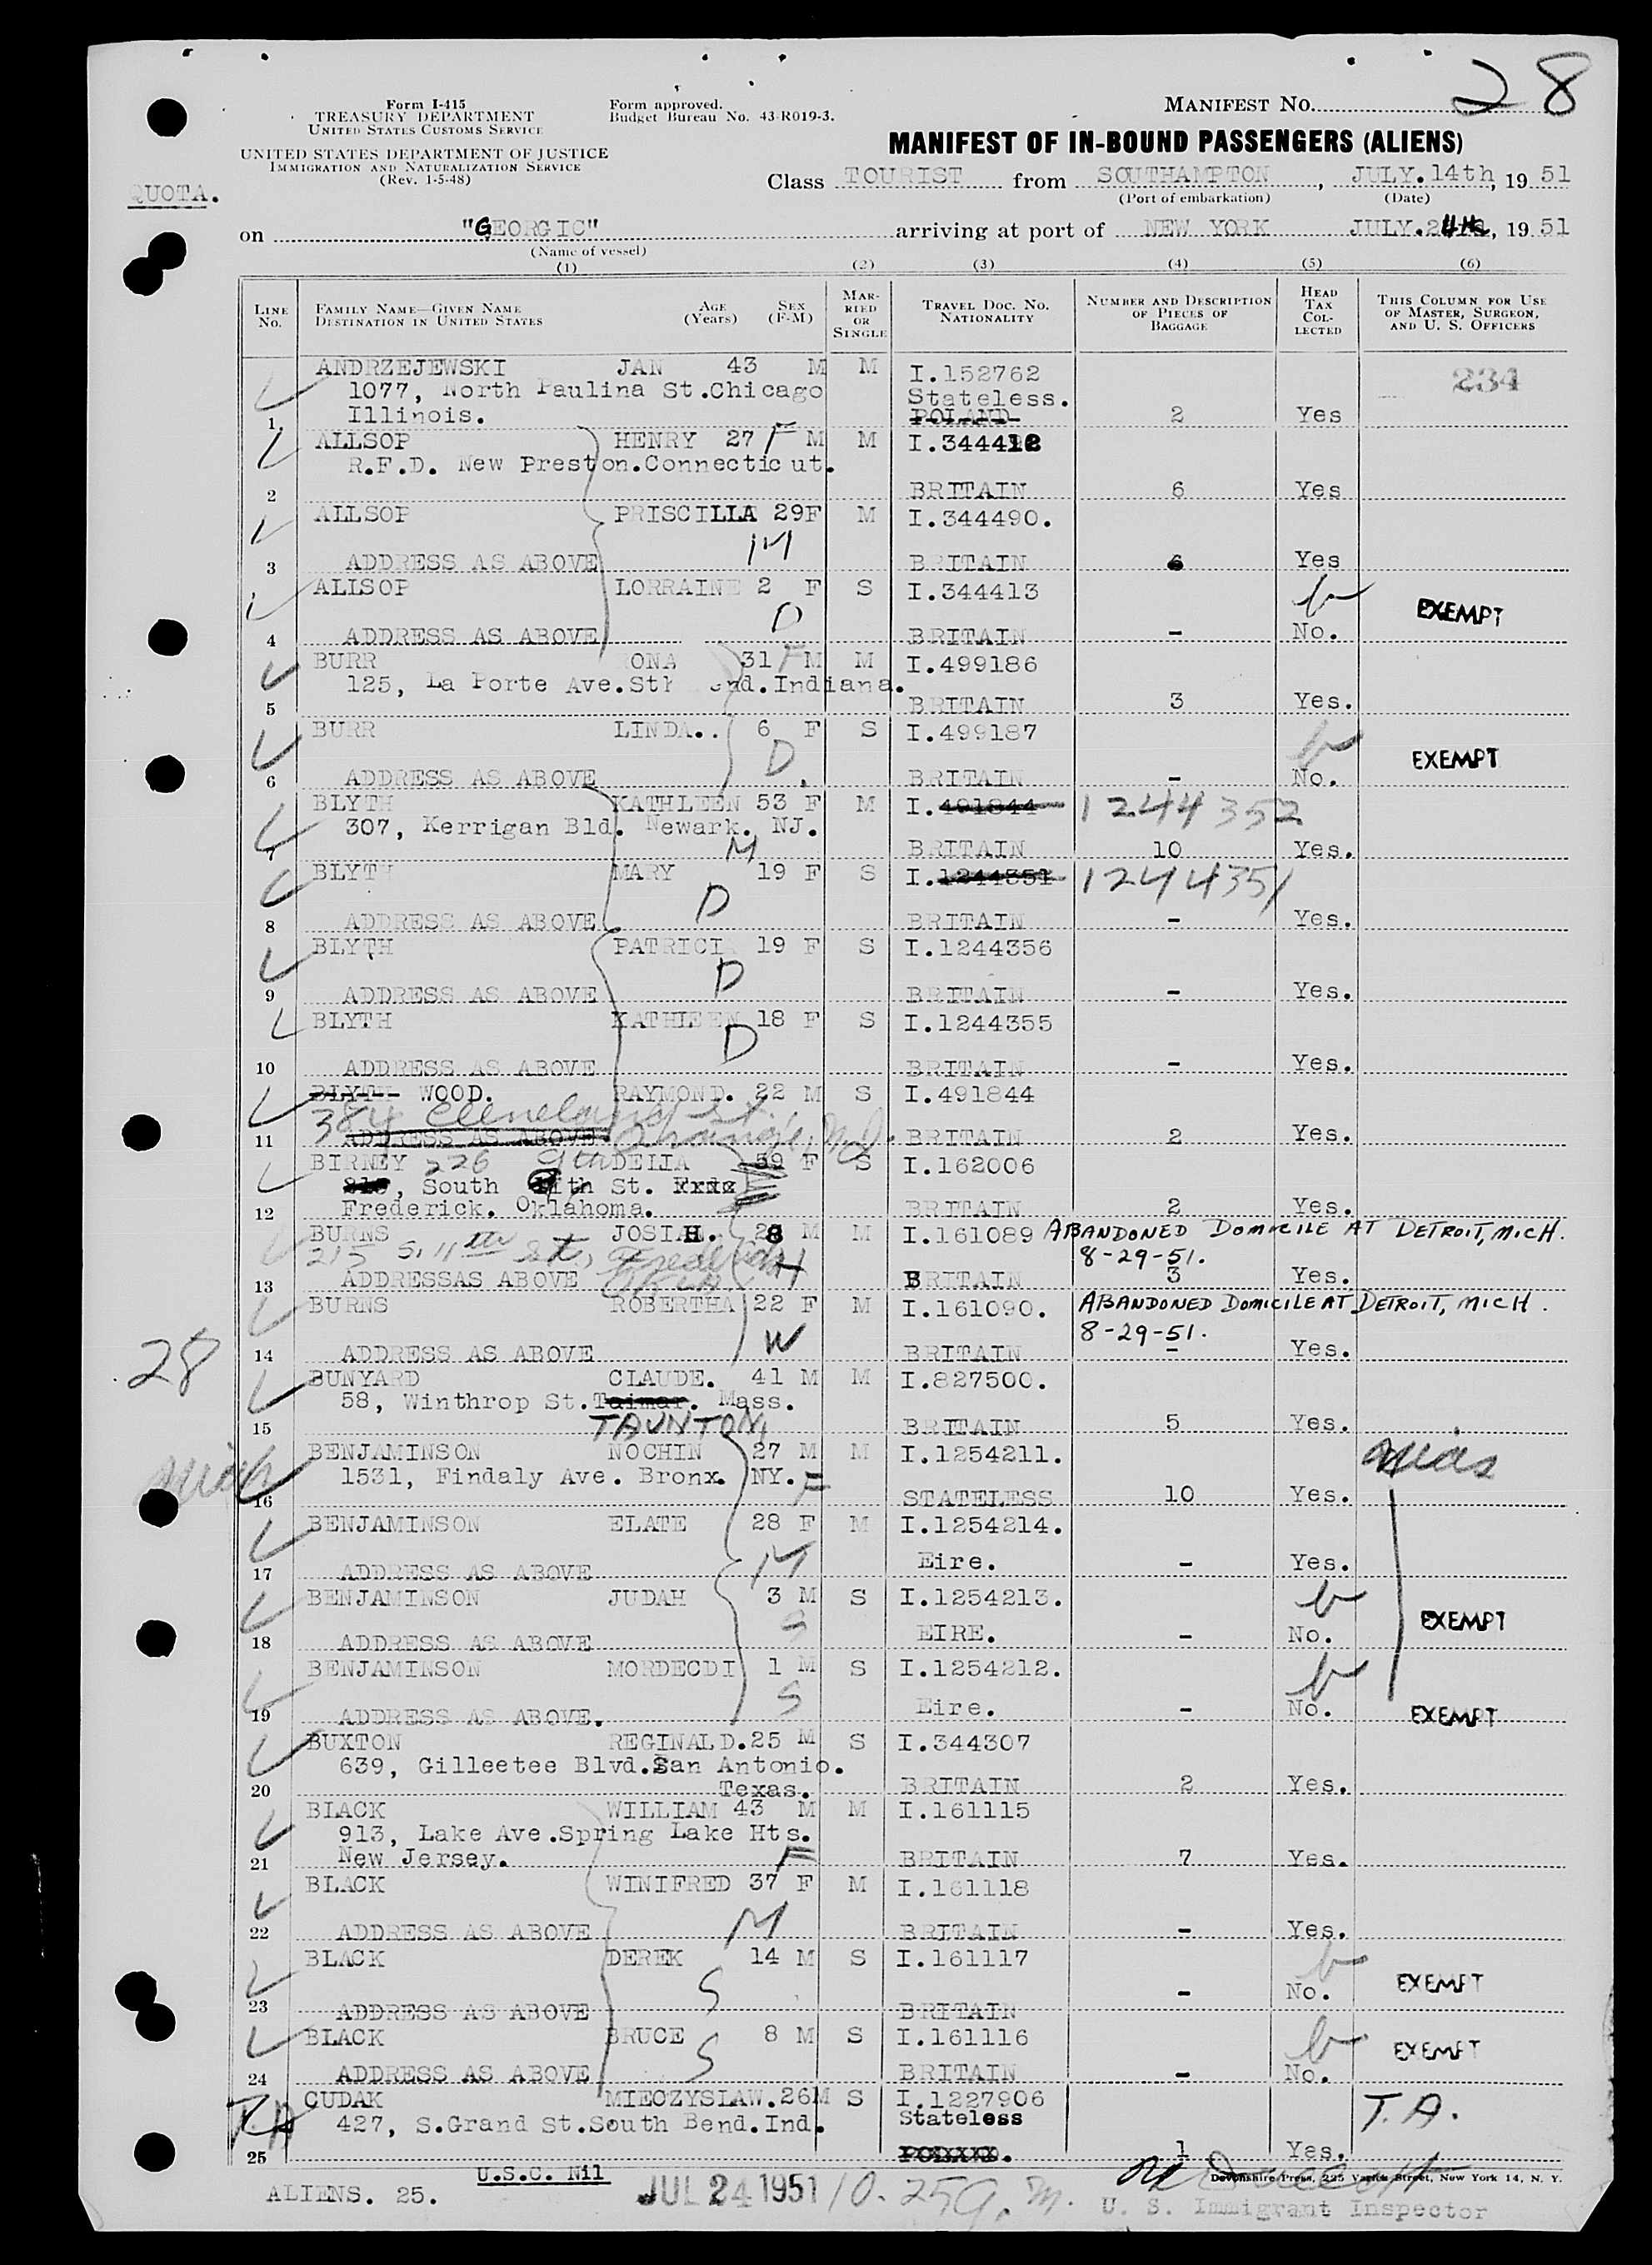 28
Form I-415
TREASURY DEPARTMENT
UNITED STATES CUSTOMS SERVICE
Form approved.
Budget Bureau No. 43-R019-3.
MANIFEST NO.
UNITED STATES DEPARTMENT OF JUSTICE
IMMIGRATION AND NATURALIZATION SERVICE
(Rev. 1-5-48)
MANIFEST OF IN-BOUND PASSENGERS (ALIENS)
QUOTA.
Class TOURIST from SOUTHAMPTON, JULY.14th, 19 51
(Port of embarkation) (Date)
on "GEORGIC" arriving at port of NEW YORK JULY. 19 51
(Name of vessel)
(1) (2) (3) (4) (5) (6)
LINE No. FAMILY NAME—GIVEN NAME DESTINATION IN UNITED STATES AGE (Years) SEX (F-M) MARRIED OR SINGLE TRAVEL DOC. NO. NATIONALITY NUMBER AND DESCRIPTION OF PIECES OF BAGGAGE HEAD TAX COLLECTED THIS COLUMN FOR USE OF MASTER, SURGEON, AND U. S. OFFICERS
ANDRZEJEWSKI JAN 43 M M I.152762 234
1077, North Paulina St.Chicago Stateless.
1 Illinois. POLAND 2 Yes
ALLSOP HENRY 27 F M M I.344412
R.F.D. New Preston.Connecticut.
2 BRITAIN 6 Yes
ALLSOP PRISCILLA 29F M I.344490.
M
3 ADDRESS AS ABOVE BRITAIN Yes
ALLSOP LORRAINE 2 F S I.344413
D EXEMPT
4 ADDRESS AS ABOVE BRITAIN - No.
BURR ONA 31 F M M I.499186
125, La Porte Ave. end.Indiana.
5 BRITAIN 3 Yes.
BURR LINDA.. 6 F S I.499187
D EXEMPT
6 ADDRESS AS ABOVE BRITAIN - No.
BLYTH KATHLEEN 53 F M I.491844 1244352
307, Kerrigan Bld. Newark. NJ.
7 M BRITAIN 10 Yes.
BLYTH MARY 19 F S I.1244351 1244351
D
8 ADDRESS AS ABOVE BRITAIN - Yes.
BLYTH PATRICI 19 F S I.1244356
D
9 ADDRESS AS ABOVE BRITAIN - Yes.
BLYTH KATHLEEN 18 F S I.1244355
D
10 ADDRESS AS ABOVE BRITAIN - Yes.
BLYTH WOOD. RAYMOND. 22 M S I.491844
384 Cleveland St.
11 ADDRESS AS ABOVE Orange, N.J. BRITAIN 2 Yes.
BIRNEY 226 9th DELIA 59 F S I.162006
, South th St.
12 Frederick. Oklahoma. BRITAIN 2 Yes.
BURNS JOSIAH. 28 M M I.161089 ABANDONED DOMICILE AT DETROIT, MICH.
215 S. 11th St., Frederick 8-29-51.
13 ADDRESSAS ABOVE OKLA H BRITAIN 3 Yes.
BURNS ROBERTHA 22 F M I.161090. ABANDONED DOMICILE AT DETROIT, MICH.
W 8-29-51.
14 ADDRESS AS ABOVE BRITAIN - Yes.
28
BUNYARD CLAUDE. 41 M M I.827500.
58, Winthrop St. Mass.
15 TAUNTON, BRITAIN 5 Yes.
BENJAMINSON NOCHIN 27 M M I.1254211.
1531, Findaly Ave. Bronx. NY. F
16 STATELESS 10 Yes.
BENJAMINSON ELATE 28 F M I.1254214.
17 ADDRESS AS ABOVE M Eire. - Yes.
BENJAMINSON JUDAH 3 M S I.1254213.
S EXEMPT
18 ADDRESS AS ABOVE EIRE. - No.
BENJAMINSON MORDECDI 1 M S I.1254212.
S
19 ADDRESS AS ABOVE. Eire. - No. EXEMPT
BUXTON REGINALD.25 M S I.344307
639, Gilleetee Blvd.San Antonio.
20 Texas. BRITAIN 2 Yes.
BLACK WILLIAM 43 M M I.161115
913, Lake Ave.Spring Lake Hts.
21 New Jersey. F BRITAIN 7 Yes.
BLACK WINIFRED 37 F M I.161118
M
22 ADDRESS AS ABOVE BRITAIN - Yes.
BLACK DEREK 14 M S I.161117
S EXEMPT
23 ADDRESS AS ABOVE BRITAIN - No.
BLACK BRUCE 8 M S I.161116
S EXEMPT
24 ADDRESS AS ABOVE BRITAIN - No.
CUDAK MIECZYSLAW.26M S I.1227906
T.A 427, S.Grand St.South Bend.Ind. Stateless T.A.
25 1 Yes.
U.S.C. Nil Devonshire Press, 225 Varick Street, New York 14, N. Y.
ALIENS. 25. JUL 24 1951 10.25 a.m.
U. S. Immigrant Inspector